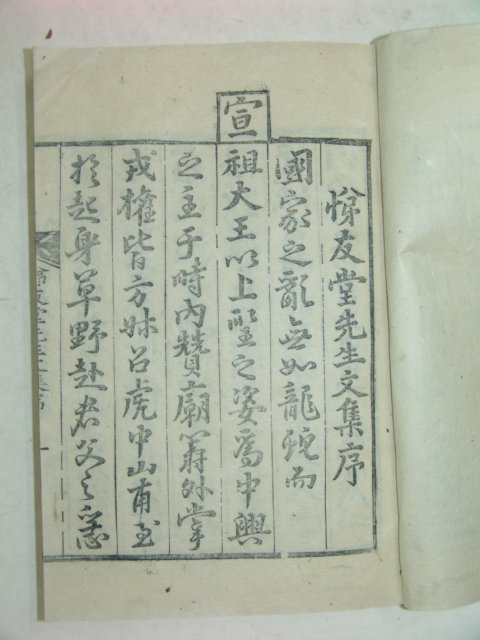 悌友堂先生文集序
國家之亂無如龍蛇而
宣祖大王以上聖之姿爲中興
之主于時內贊廟筭外掌
戎權皆方叔召虎中山甫至
於起身草野赴君父之急